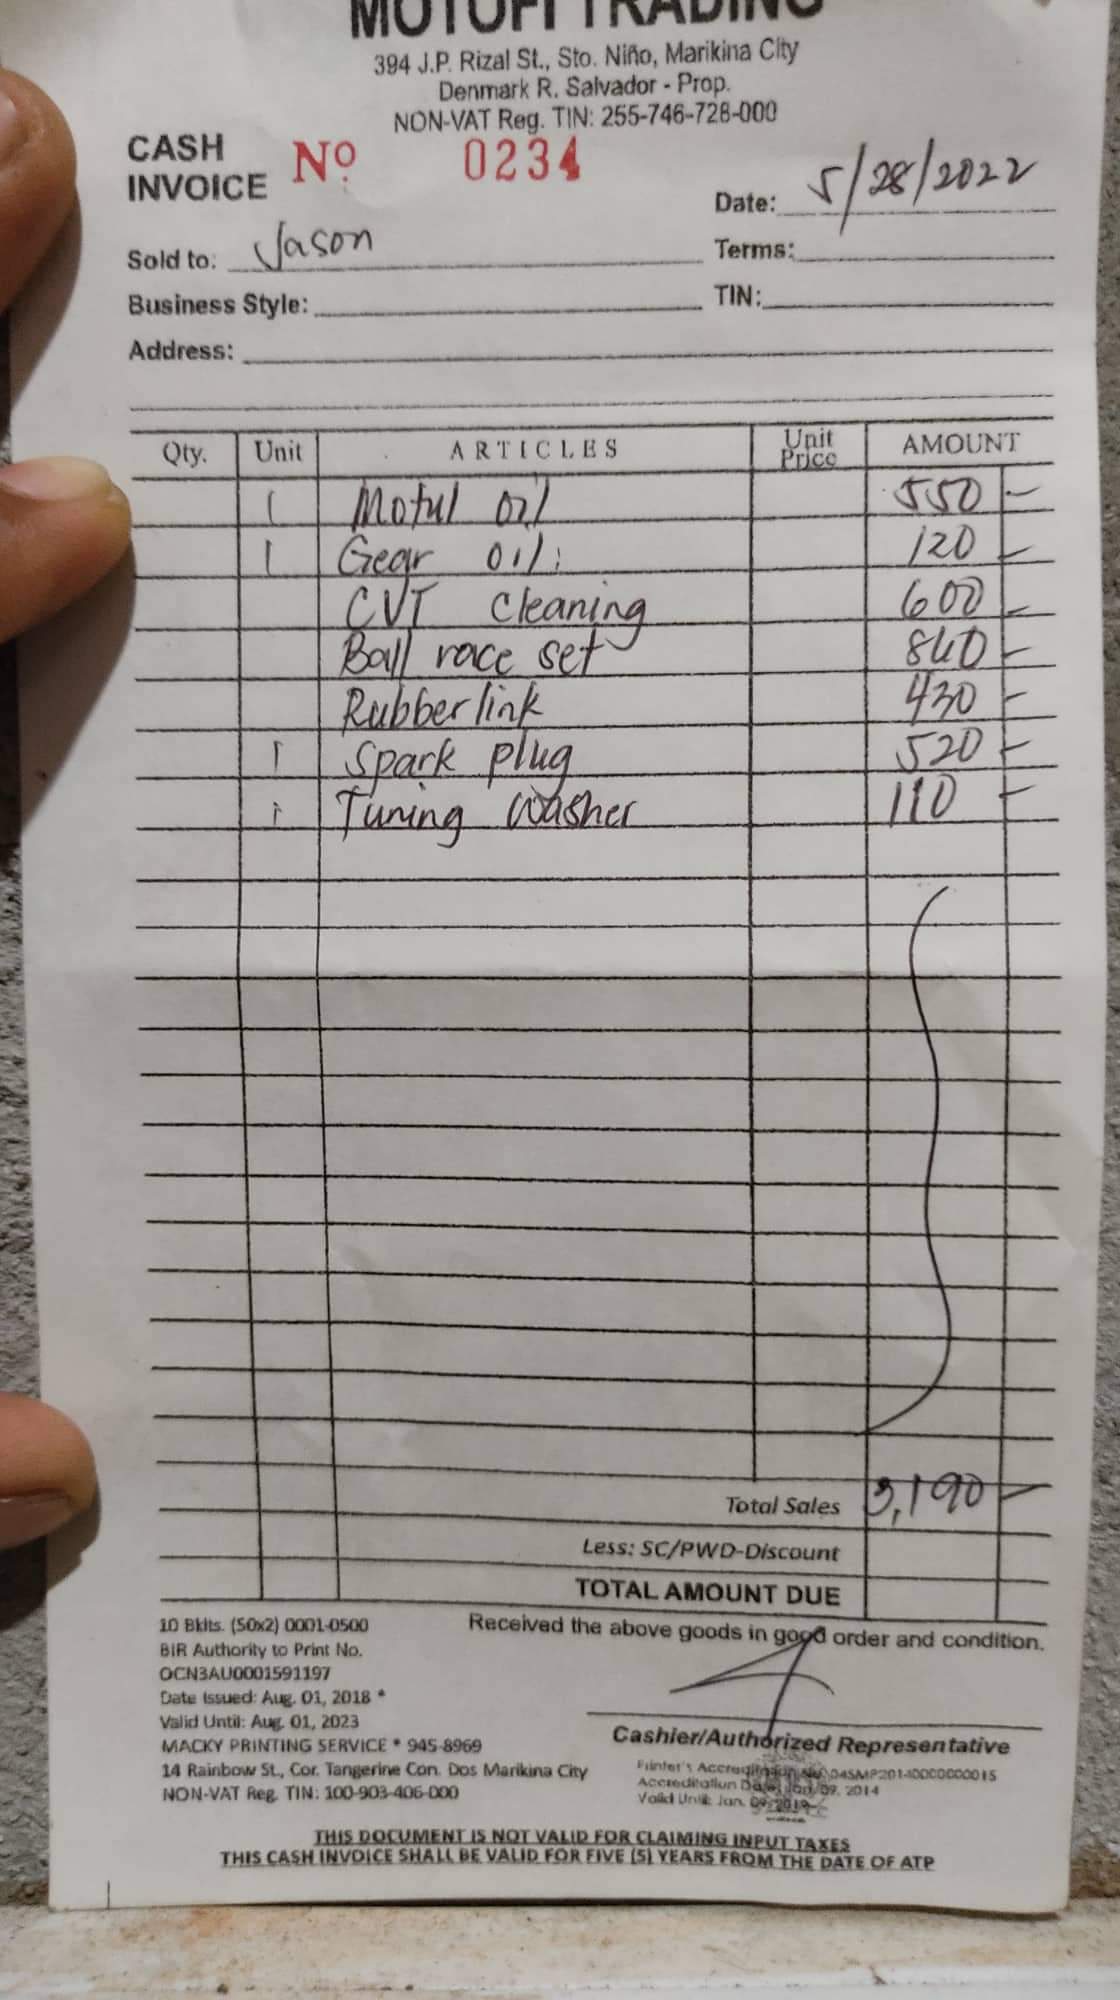 MOTOFI TRADING
394 J.P. Rizal St., Sto. Niño, Marikina City
Denmark R. Salvador - Prop.
NON-VAT Reg. TIN: 255-746-728-000
CASH INVOICE Nº 0234
Date: 5/28/2022
Sold to: Jason Terms:
Business Style: TIN:
Address:
Qty. Unit ARTICLES Unit Price AMOUNT
1 Motul oil 550 -
1 Gear oil 120 -
CVT cleaning 600 -
Ball race set 860 -
Rubber link 430 -
1 Spark plug 520 -
1 Tuning washer 110 -
Total Sales 3,190 -
Less: SC/PWD-Discount
TOTAL AMOUNT DUE
Received the above goods in good order and condition.
10 Bklts. (50x2) 0001-0500
BIR Authority to Print No.
OCN3AU0001591197
Date Issued: Aug. 01, 2018 *
Valid Until: Aug. 01, 2023
MACKY PRINTING SERVICE * 945-8969
14 Rainbow St., Cor. Tangerine Con. Dos Marikina City
NON-VAT Reg. TIN: 100-903-406-000
Cashier/Authorized Representative
Printer's Accreditation No. 045MP20140000000015
Accreditation Date: Jan. 09, 2014
Valid Until: Jan. 09, 2019
THIS DOCUMENT IS NOT VALID FOR CLAIMING INPUT TAXES
THIS CASH INVOICE SHALL BE VALID FOR FIVE (5) YEARS FROM THE DATE OF ATP